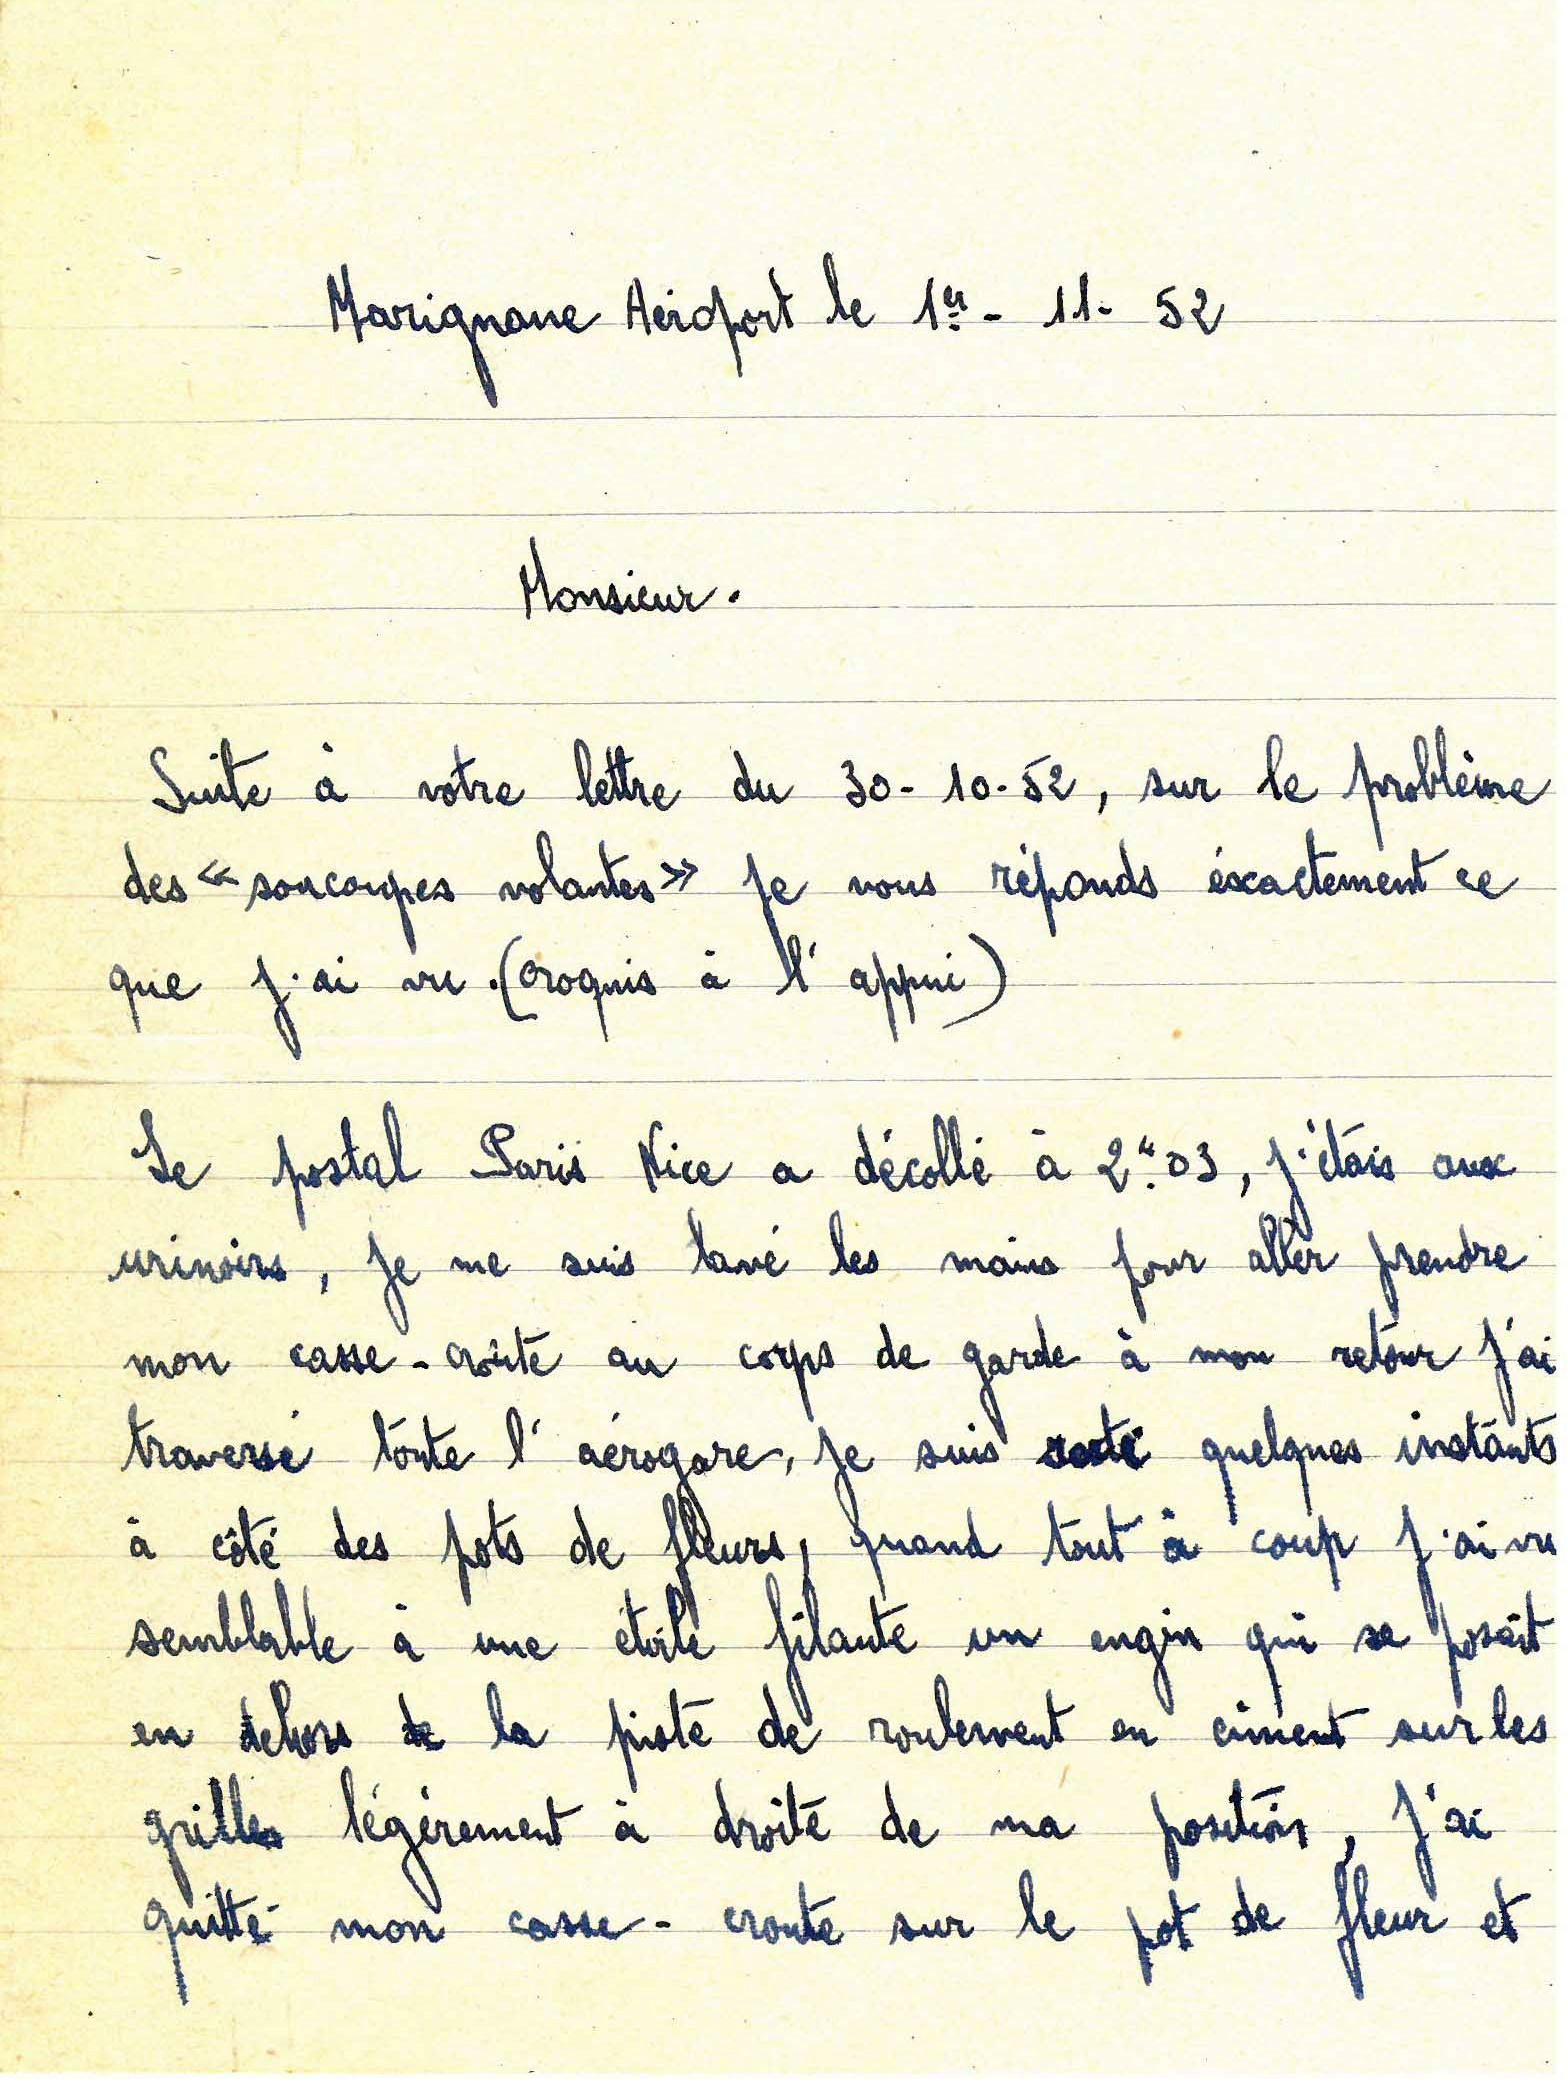 Marignane Aéroport le 1er - 11 - 52
Monsieur.
Suite à votre lettre du 30-10-52, sur le problème
des « soucoupes volantes » je vous réponds éxactement ce
que j'ai vu. (croquis à l'appui)
Le postal Paris Nice a décollé à 2h03, j'étais aux
urinoirs, je me suis lavé les mains pour aller prendre
mon casse-croûte au corps de garde à mon retour j'ai
traversé toute l'aérogare, je suis resté quelques instants
à côté des pots de fleurs, quand tout à coup j'ai vu
semblable à une étoile filante un engin qui se posait
en dehors de la piste de roulement en ciment sur les
grilles légérement à droite de ma position, j'ai
quitté mon casse-croute sur le pot de fleur et